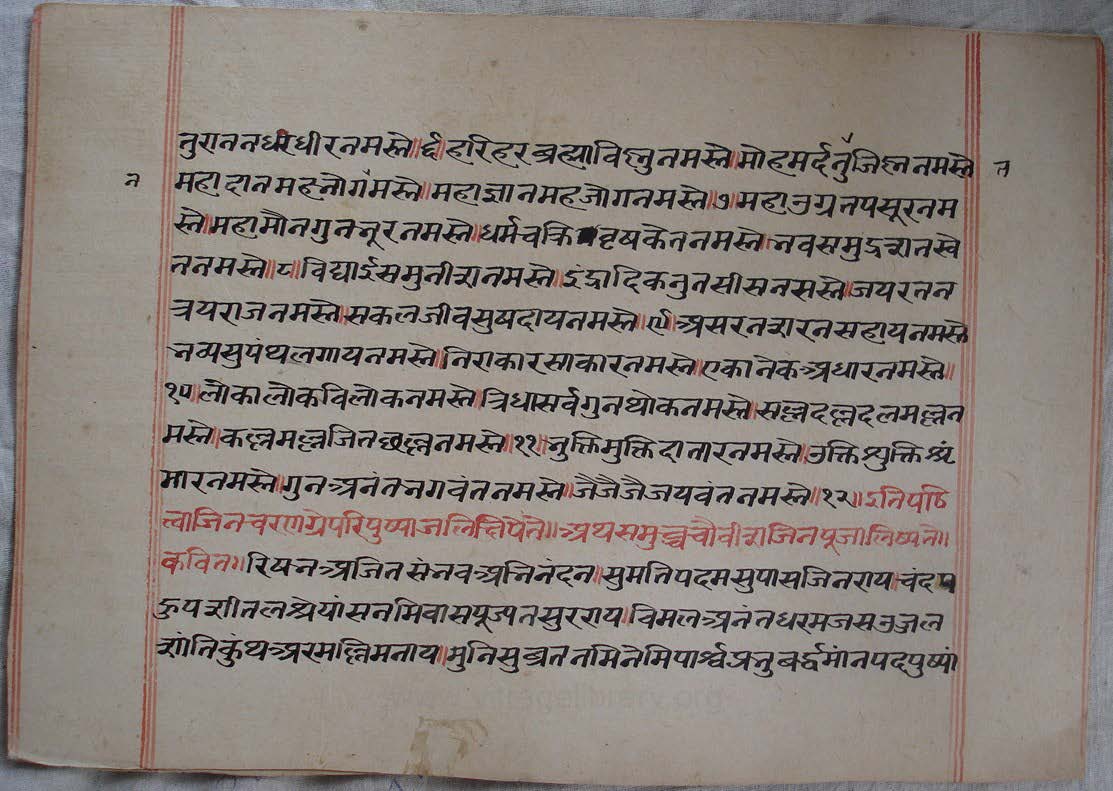 तुराननधरंधीरनमस्ते॥६॥हरिहरब्रह्माविस्नुनमस्ते॥मोहमर्दनुजिस्ननमस्ते
महादानमहनोगंमस्ते॥महाज्ञानमहजोगनमस्ते॥७॥महाउग्रतपसूरनम
स्ते॥महामौनगुनभूरनमस्ते॥धर्मचक्रिवृषकेतनमस्ते॥भवसमुद्रशतस्वे
तनमस्ते॥८॥विद्याईसमुनीशनमस्ते॥इंद्रादिकनुतसीसनसस्ते॥जयरतन
त्रयराजनमस्ते॥सकलजीवसुषदायनमस्ते॥९॥असरनशरनसहायनमस्ते
भव्यसुपंथलगायनमस्ते॥निराकारसाकारनमस्ते॥एकानेकअधारनमस्ते॥
१०॥लोकालोकविलोकनमस्ते॥त्रिधासर्वगुनथोकनमस्ते॥सल्लदल्लदलमल्लन
मस्ते॥कल्लमल्लजितछल्लनमस्ते॥११॥भुक्तिमुक्तिदातारनमस्ते॥उक्तिशुक्तिश्रं
गारनमस्ते॥गुनअनंतभगवंतनमस्ते॥जैजैजैजयवंतनमस्ते॥१२॥इतिपठि
त्वाजिनचरणाग्रेपरिपुष्पाजलिंक्षिपेत्॥अथसमुच्चयचौवीशजिनपूजालिष्यते॥
कवित॥रिषभअजितसंभवअभिनंदन॥सुमतिपदमसुपासजिनराय॥चंद
पुहुपशीतलश्रेयांसनमिवासपूजतसुरराय॥विमलअनंतधरमजसउज्जल
शांतिकुंथअरमल्लिमनाय॥मुनिसुब्रतनमिनेमिपार्श्वप्रभुबर्द्धमांनपदपुष्पां